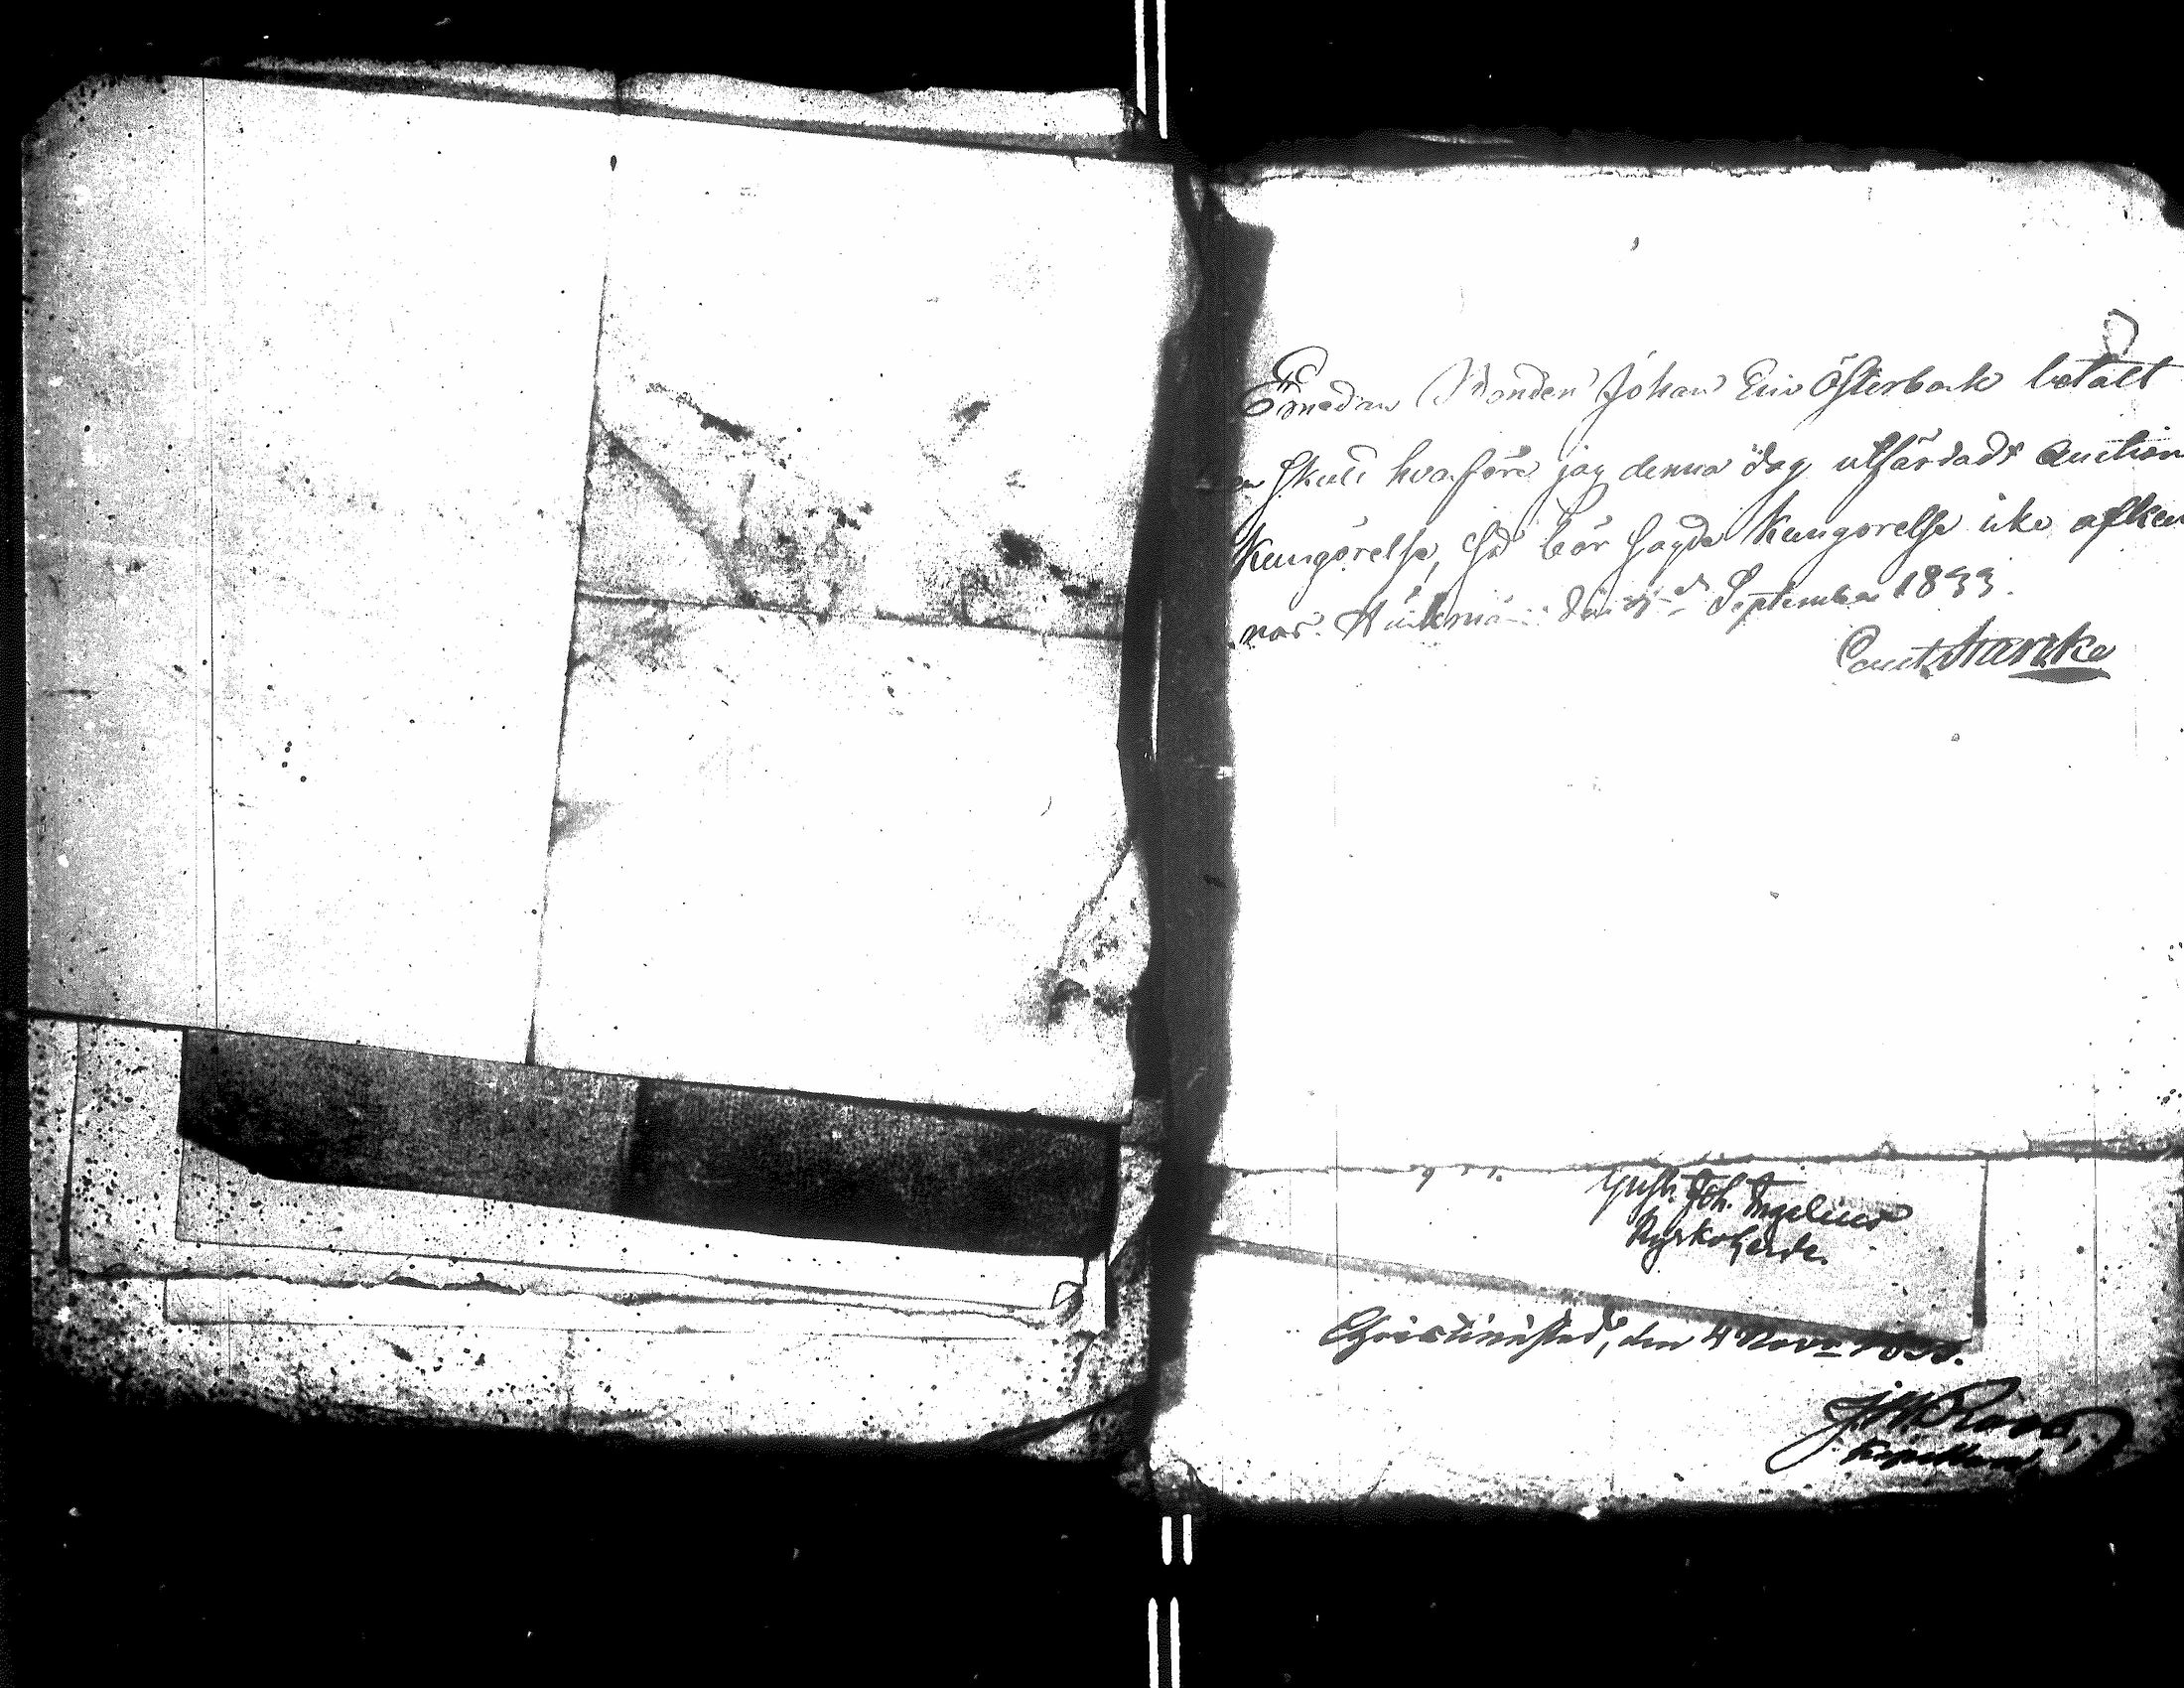 Emedan Bonden Johan Eric Österback betalt
en skuld hvarföre jag denna dag utfärdadt Auction
Kungörelse, så bör sagde Kungörelse icke afkun
nas. den September 1833.
Carl Starcke
Gust. Joh. Ingelius
Kyrkoherde.
Christinestad, den 4 Nov.
Kapellan